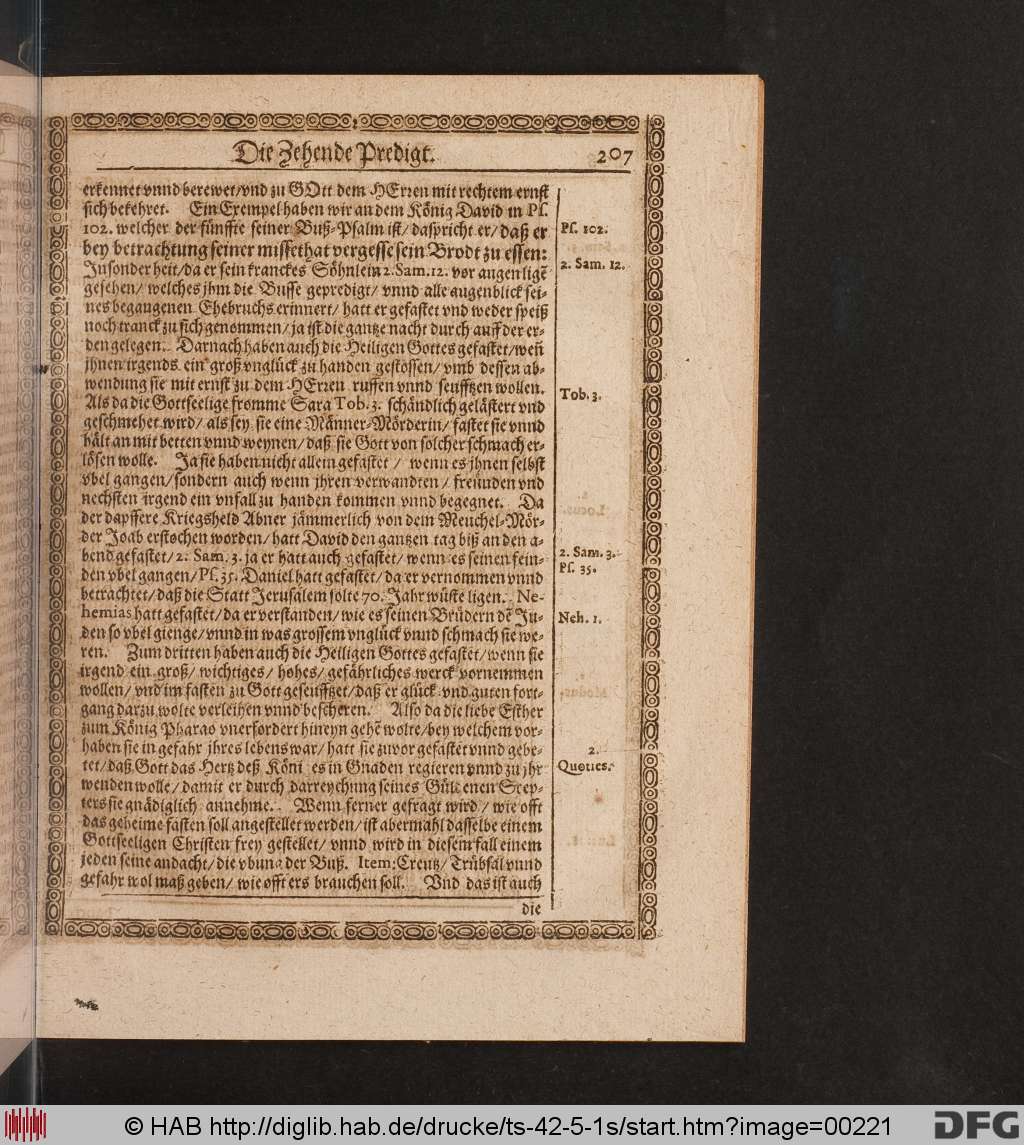 Die Zehende Predigt. 207
erkennet vnnd berewet/vnd zu GOtt dem HErren mit rechtem ernst
sich bekehret. Ein Exempel haben wir an dem König David im Ps.
102. welcher der fünffte seiner Buß-Psalm ist/ da spricht er/ daß er
bey betrachtung seiner missethat vergesse sein Brodt zu essen:
Insonderheit/da er sein kranckes Söhnlein 2. Sam. 12. vor augen ligẽ
gesehen/ welches jhm die Busse gepredigt/ vnnd alle augenblick sei-
nes begangenen Ehebruchs erinnert/ hatt er gefastet vnd weder speiß
noch tranck zu sich genommen/ ja ist die gantze nacht durch auff der er-
den gelegen. Darnach haben auch die Heiligen Gottes gefastet/weñ
jhnen irgends ein groß vnglück zu handen gestossen/ vmb dessen ab-
wendung sie mit ernst zu dem HErren ruffen vnnd seufftzen wollen.
Als da die Gottseelige fromme Sara Tob. 3. schändlich gelästert vnd
geschmehet wird/ als sey sie eine Männer-Mörderin/ fastet sie vnnd
hält an mit betten vnnd weynen/ daß sie Gott von solcher schmach er-
lösen wolle. Ja sie haben nicht allein gefastet / wenn es jhnen selbst
vbel gangen/sondern auch wenn jhren verwandten / freunden vnd
nechsten irgend ein vnfall zu handen kommen vnnd begegnet. Da
der dapffere Kriegsheld Abner jämmerlich von dem Meuchel-Mör-
der Joab erstochen worden/ hatt David den gantzen tag biß an den a-
bend gefastet/2. Sam. 3. ja er hatt auch gefastet/ wenn es seinen fein-
den vbel gangen/Ps. 35. Daniel hatt gefastet/ da er vernommen vnnd
betrachtet/ daß die Statt Jerusalem solte 70. Jahr wüste ligen. Ne-
hemias hatt gefastet/da er verstanden/ wie es seinen Brüdern dẽ Ju-
den so vbel gienge/ vnnd in was grossem vnglück vnnd schmach sie we-
ren. Zum dritten haben auch die Heiligen Gottes gefastet/wenn sie
irgend ein groß/ wichtiges/ hohes/ gefährliches werck vornemmen
wollen/ vnd im fasten zu Gott geseufftzet/ daß er glück vnd guten fort-
gang darzu wolte verleihen vnnd bescheren. Also da die liebe Esther
zum König Pharao vnerfordert hineyn gehẽ wolte/bey welchem vor-
haben sie in gefahr jhres lebens war/ hatt sie zuvor gefastet vnnd gebe-
tet/ daß Gott das Hertz deß Köni es in Gnaden regieren vnnd zu jhr
wenden wolle/ damit er durch darreychung seines Güldenen Scep-
ters sie gnädiglich annehme. Wenn ferner gefragt wird/ wie offt
das geheime fasten soll angestellet werden/ ist abermahl dasselbe einem
Gottseeligen Christen frey gestellet/ vnnd wird in diesem fall einem
jeden seine andacht/ die vbung der Buß. Item: Creutz/ Trübsal vnnd
gefahr wol maß geben/ wie offt ers brauchen soll. Vnd das ist auch
die
Ps. 102.
2. Sam. 12.
Tob. 3.
2. Sam. 3.
Ps. 35.
Neh. 1.
2.
Quoties.
© HAB http://diglib.hab.de/drucke/ts-42-5-1s/start.htm?image=00221
DFG